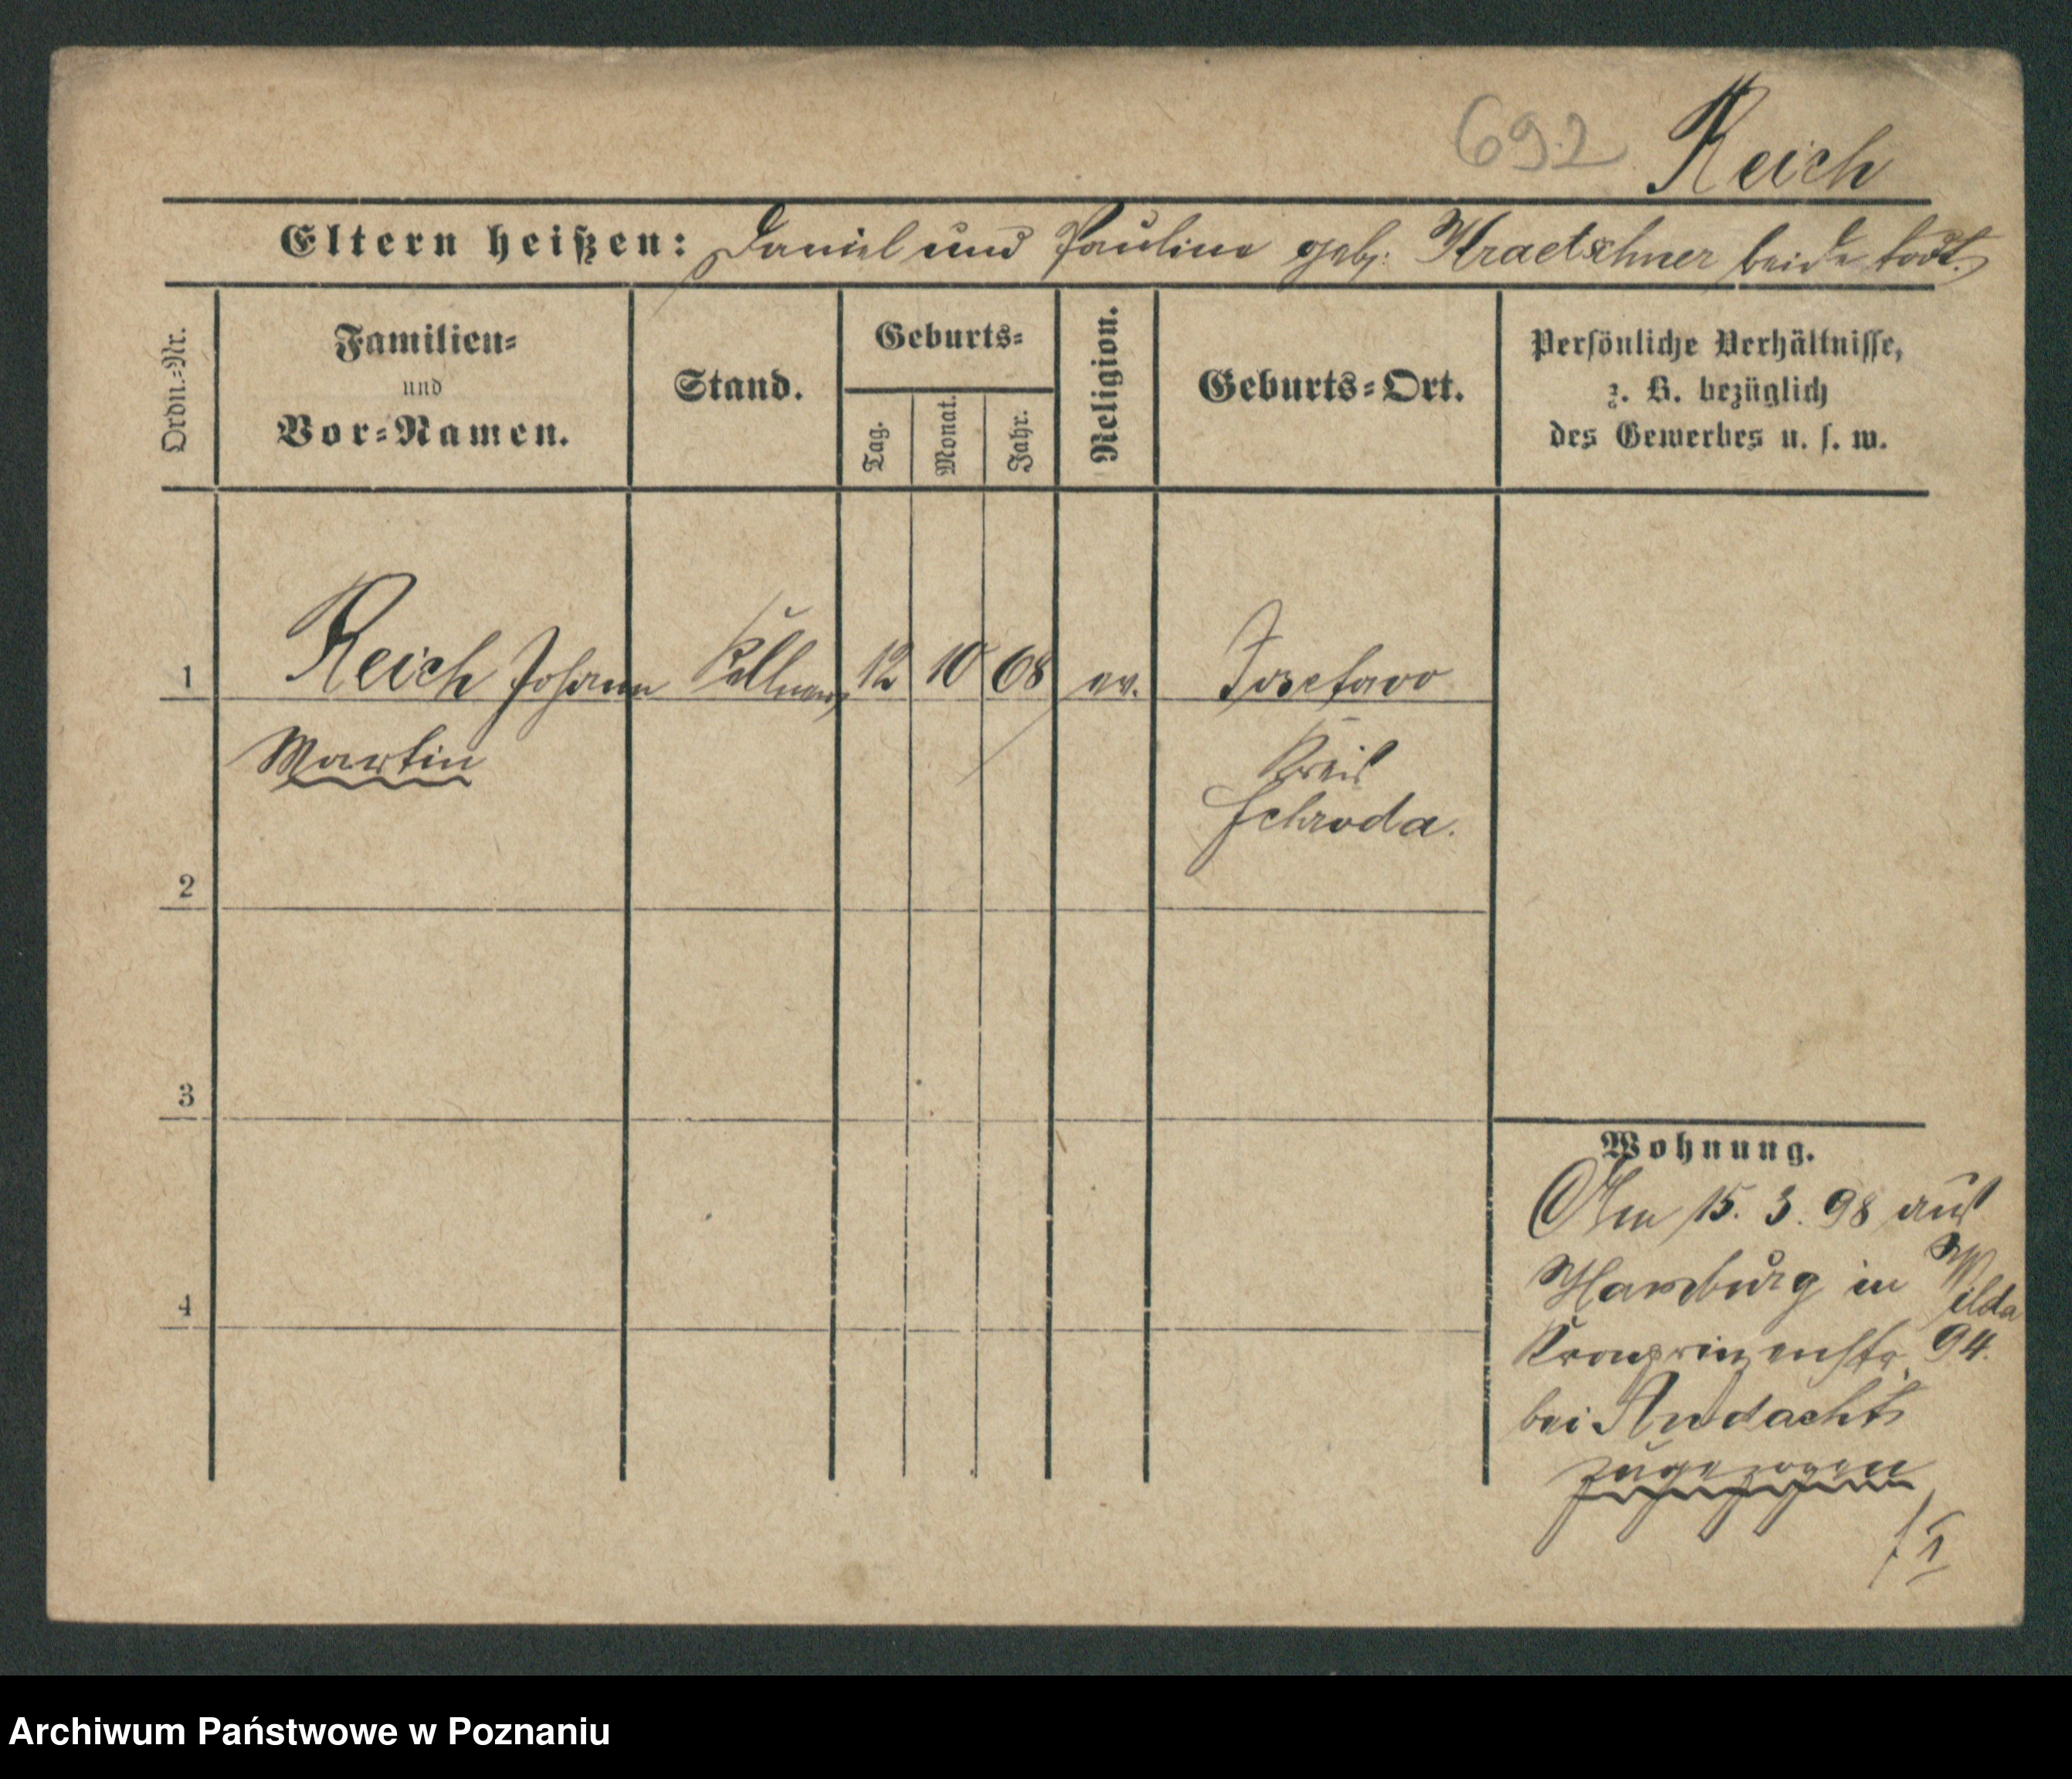 692 Reich
Eltern heißen: Daniel und Pauline geb: Kraetschner beide todt.
Ordn.=Nr.
Familien=
und
Vor=Namen.
Stand.
Geburts=
Tag.
Monat.
Jahr.
Religion.
Geburts=Ort.
Persönliche Verhältnisse,
z. B. bezüglich
des Gewerbes u. s. w.
1 Reich Johann Kellner 12 10 68 ev. Josefowo
Martin
Kreis
Schroda.
2
3
4
Wohnung.
Am 15. 3. 98 aus
Hamburg in Wilda
Kronprinzenstr. 94.
bei Andacht
zugezogen
Archiwum Państwowe w Poznaniu